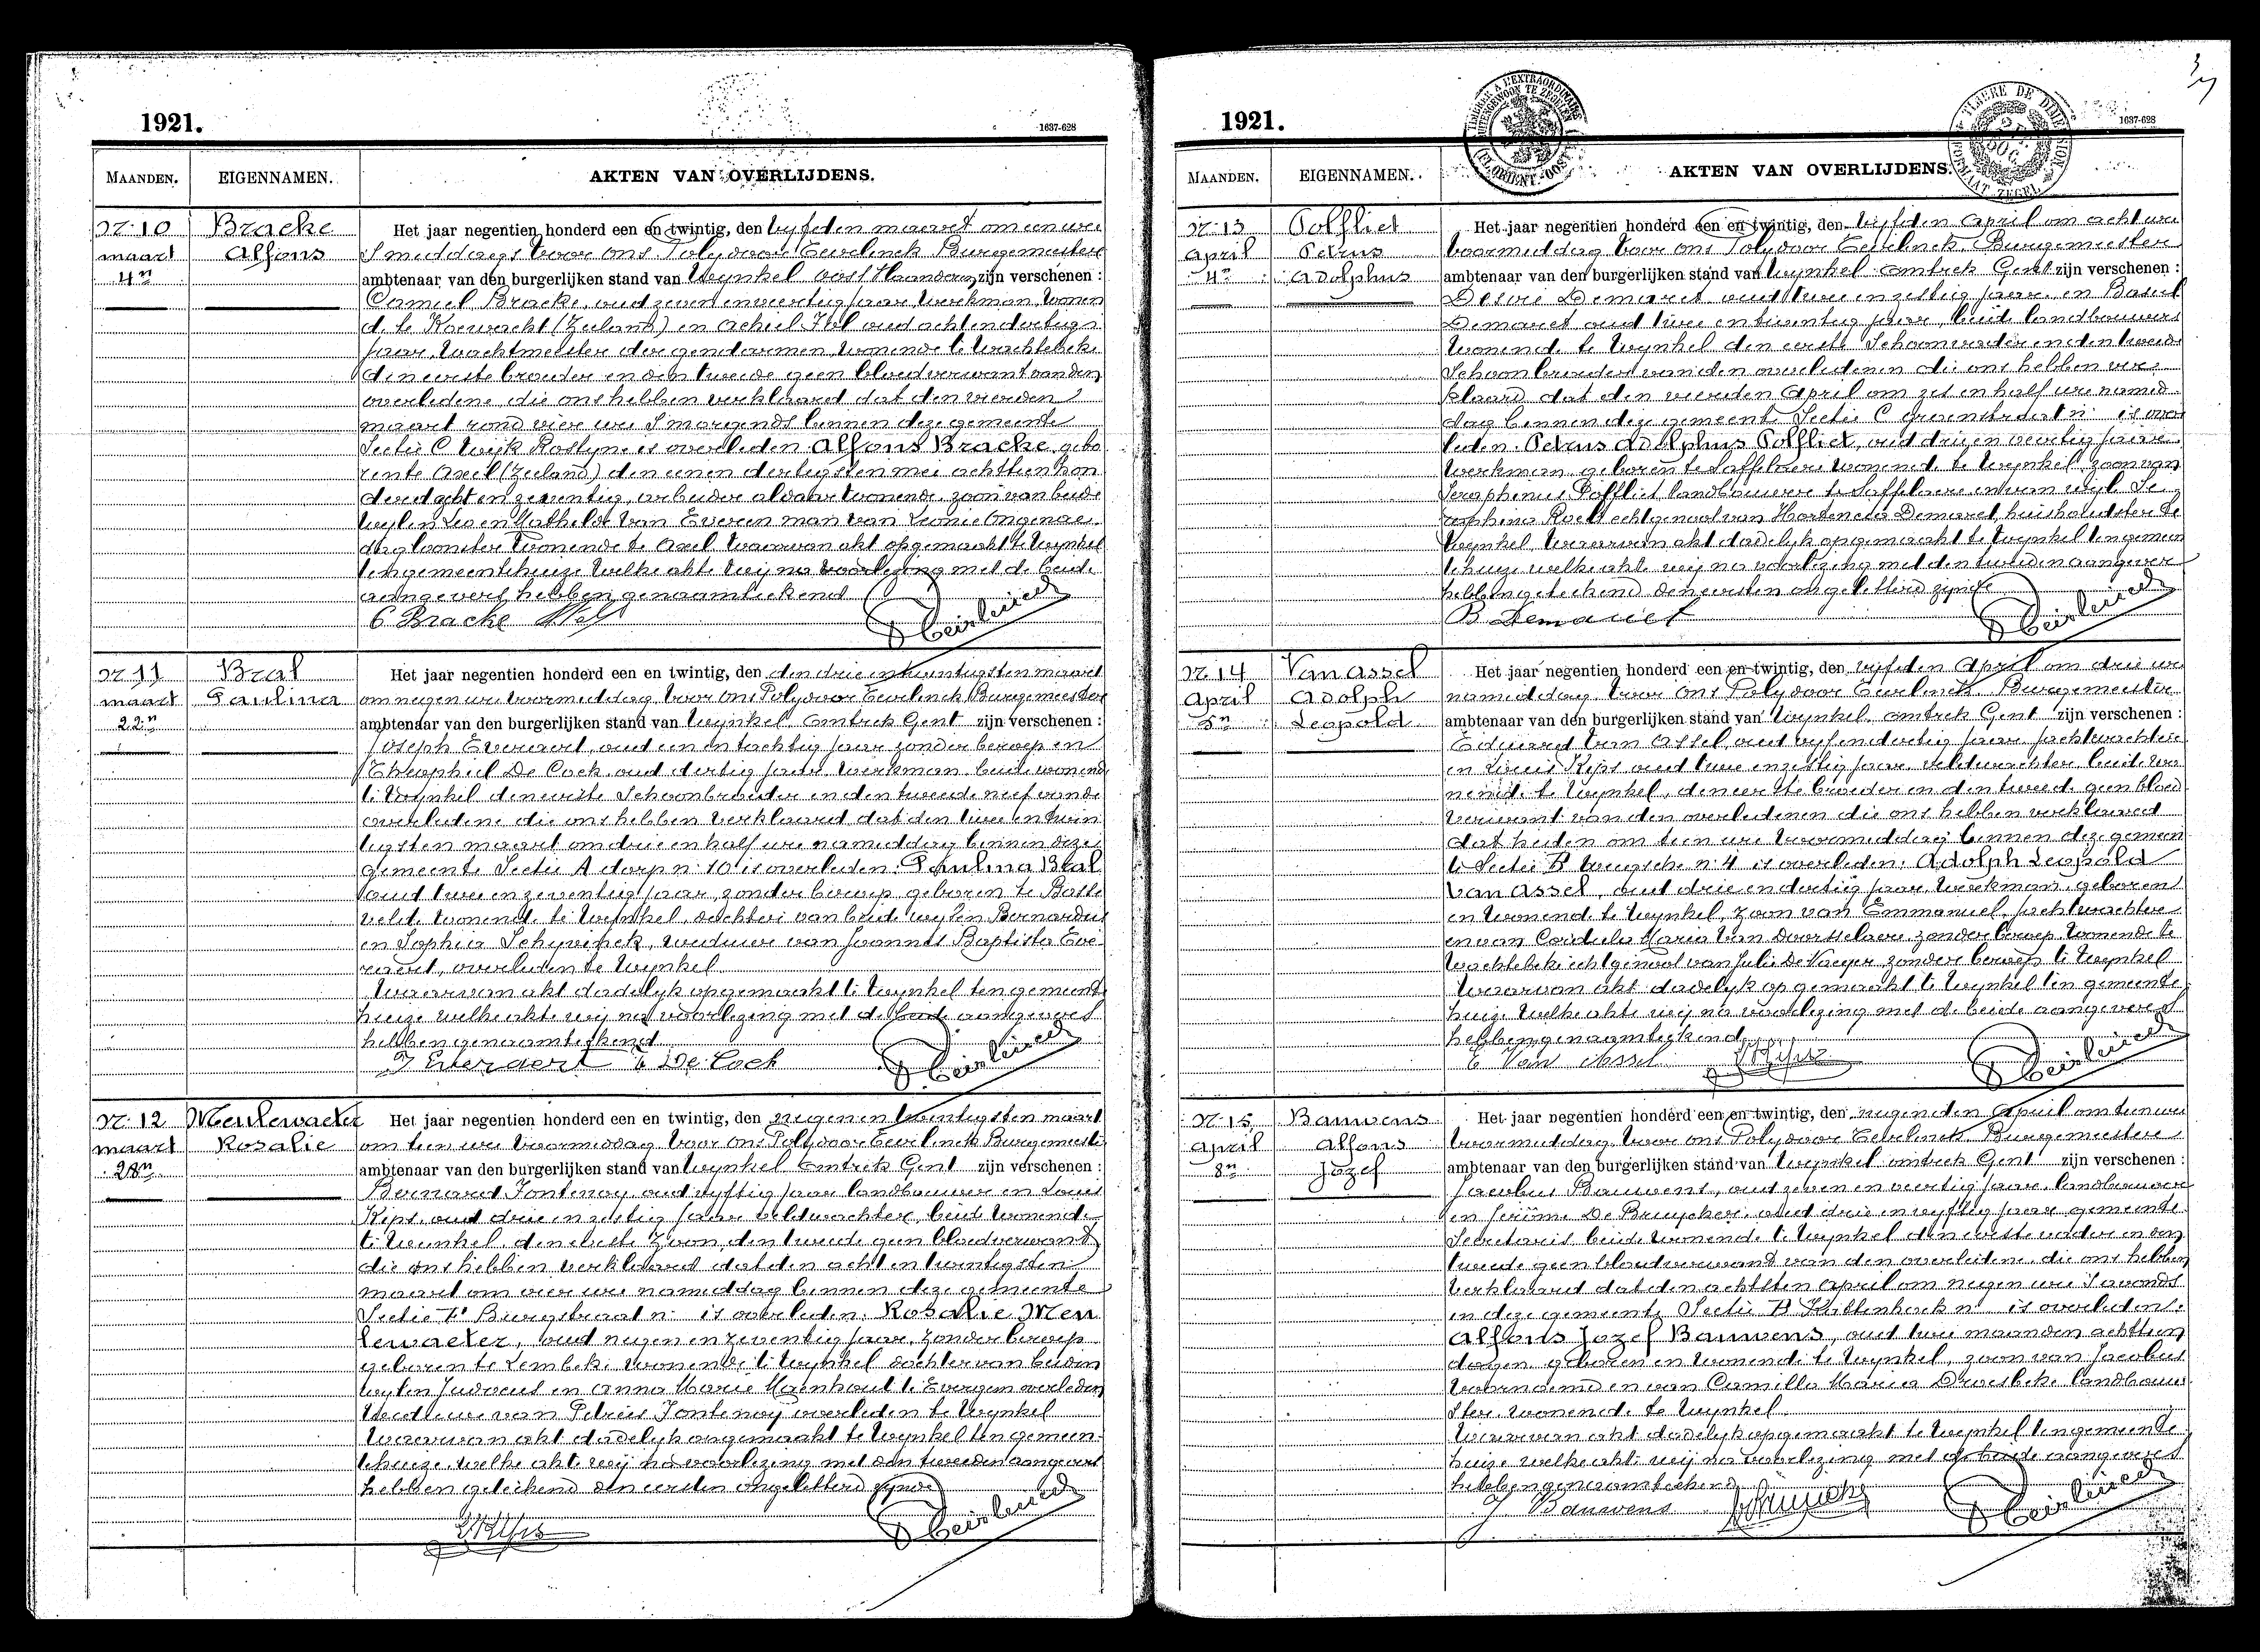 1921.
1637-628
MAANDEN. EIGENNAMEN. AKTEN VAN OVERLIJDENS.
Nr 10 Bracke Het jaar negentien honderd een en twintig, den vyfden maart om een ure
maart Alfons S'middags voor ons Polydoor Eeverlinck Burgemeester
4n ambtenaar van den burgerlijken stand van Wynkel Oost Vlaanderen zijn verschenen :
Camiel Bracke, oud zeven en veertig jaar werkman wonen
de te Koewacht (Zeeland) en Achiel Hol oud acht en dertig
jaar, wachtmeester der gendarmen, wonende te Wachtebeke
den eerste broeder en den tweede geen bloedverwant van den
overledene, die ons hebben verklaard dat den vierden
maart rond vier ure S'morgends binnen deze gemeente
Sectie C Wyk Rostyne is overleden Alfons Bracke, gebo
ren te Axel (Zeeland) den eenen dertigsten mei achttien hon
derd acht en zeventig, arbeider aldaar wonende, zoon van beide
wylen Leo en Mathilde Van Everen man van Leonie Ongenae
dagloonster wonende te Axel waarvan akt opgemaakt te Wynkel
ten gemeentehuize welke akte wij na voorlezing met de beide
aangevers hebben genaamteekend
C Bracke Hol
Nr 11 Bral Het jaar negentien honderd een en twintig, den den drie en twintigsten maart
maart Paulina om negen ure voormiddag voor ons Polydoor Eeverlinck Burgemeester
22n ambtenaar van den burgerlijken stand van Wynkel, omtrek Gent zijn verschenen :
Joseph Everaert, oud een en tachtig jaar zonder beroep en
Theophiel De Cock oud dertig jaar werkman beide wonende
te Wynkel den eerste Schoonbroeder en den tweede neef van de
overledene die ons hebben verklaard dat den twee en twin
tigsten maart om drie en half ure namiddag binnen deze
gemeente Sectie A dorp n: 10 is overleden: Paulina Bral
oud twee en zeventig jaar, zonder beroep geboren te Basse
velde wonende te Wynkel, dochter van beide wylen Bernardus
en Sophia Schyvinck, weduwe van Joannes Baptista Eve
raert, overleden te Wynkel
Waarvan akt dadelyk opgemaakt te Wynkel ten gemeente
huize welke akte wij na voorlezing met de beide aangevers
hebben genaamteekend
J Everaert T De Cock
Nr 12 Meulewaeter Het jaar negentien honderd een en twintig, den negen en twintigsten maart
maart Rosalie om tien ure voormiddag voor ons Polydoor Eeverlinck Burgemeeste
28n ambtenaar van den burgerlijken stand van Wynkel omtrek Gent zijn verschenen :
Bernard Fontenoy oud vyftig jaar landbouwer en Louis
Kips, oud drie en zestig jaar veldwachter, beide wonende
te Wynkel, den eerste zoon den tweede geen bloedverwant
die ons hebben verklaard dat den acht en twintigsten
maart om vier ure namiddag binnen deze gemeente
Sectie B Burgstraat n: is overleden: Rosalie Meu
lewaeter, oud negen en zeventig jaar, zonder beroep
geboren te Lembeke wonende te Wynkel dochter van beiden
wylen Judocus en Anna Marie Haenhout te Evergem overleden
Weduwe van Petrus Fontenoy overleden te Wynkel
Waarvan akt dadelyk opgemaakt te Wynkel ten gemeen
tehuize welke akt wij na voorlezing met den tweeden aangever
hebben geteekend den eersten ongeletterd zynde
1921.
1637-628
MAANDEN. EIGENNAMEN. AKTEN VAN OVERLIJDENS.
Nr 13 Polfliet Het jaar negentien honderd een en twintig, den vyfden April om acht ure
April Petrus voormiddag voor ons Polydoor Eeverlinck Burgemeester
4n Adolphus ambtenaar van den burgerlijken stand van Wynkel omtrek Gent zijn verschenen :
Desire Demaret oud twee en zestig jaar en Basiel
Demaret oud twee en twintig jaar, beide landbouwers
wonende te Wynkel den eerste Schoonvader en den tweede
Schoonbroeder van den overledenen die ons hebben ver
klaard dat den vierden April om zes en half ure namid
dag binnen deze gemeente Sectie C Groenstraat n: is over
leden: Petrus Adolphus Polfliet, oud drie en veertig jaar
werkman geboren te Saffelaere wonende te Wynkel, zoon van
Seraphinus Polfliet landbouwer te Saffelaere en van wyle Se
raphina Roels echtgenoot van Hortencia Demaret, huishoudster te
Wynkel, waarvan akt dadelyk opgemaakt te Wynkel ten gemeen
tehuize welke akte wij na voorlezing met den tweeden aangever
hebben geteekend den eersten ongeletterd zynde
B Demaret
Nr 14 Van Assel Het jaar negentien honderd een en twintig, den vyfden April om drie ure
April Adolph namiddag voor ons Polydoor Eeverlinck Burgemeester
5n Leopold ambtenaar van den burgerlijken stand van Wynkel omtrek Gent zijn verschenen :
Eduard Van Assel, oud vyf en dertig jaar jachtwachter
en Louis Kips oud twee en zestig jaar veldwachter beide wo
nende te Wynkel, den eerste broeder en den tweede geen bloed
verwant van den overledenen die ons hebben verklaard
dat heden om tien ure voormiddag binnen deze gemeen
te Sectie B brugsche n: 4 is overleden: Adolph Leopold
Van Assel, oud drie en dertig jaar werkman, geboren
en wonende te Wynkel, zoon van Emmanuel, jachtwachter
en van Coidula Maria Van Doorsselaere zonder beroep wonende te
Wachtebeke echtgenoot van Julie De Vaeger zonder beroep te Wynkel
Waarvan akt dadelyk opgemaakt te Wynkel ten gemeente
huize welke akte wij na voorlezing met de beide aangevers
hebben genaamteekend
E Van Assel
Nr 15 Bauwens Het jaar negentien honderd een en twintig, den negenden April om tien ure
April Alfons voormiddag voor ons Polydoor Eeverlinck Burgemeester
8n Jozef ambtenaar van den burgerlijken stand van Wynkel omtrek Gent zijn verschenen :
Jacobus Bauwens, oud zeven en veertig jaar landbouwer
en Jerôme De Bruycker, oud drie en vyftig jaar gemeente
Secretaris beide wonende te Wynkel den eerste vader en den
tweede geen bloedverwant van den overledene, die ons hebben
verklaard dat den achtsten April om negen ure S'avonds
in deze gemeente Sectie B Kuttenhoek n: is overleden:
Alfons Jozef Bauwens, oud twee maanden achttien
dagen geboren en wonende te Wynkel, zoon van Jacobus
voornoemd en van Camilla Maria Droesbeke landbouw
ster wonende te Wynkel
Waarvan akt dadelyk opgemaakt te Wynkel ten gemeente
huize welke akte wij na voorlezing met de beide aangevers
hebben genaamteekend
J. Bauwens